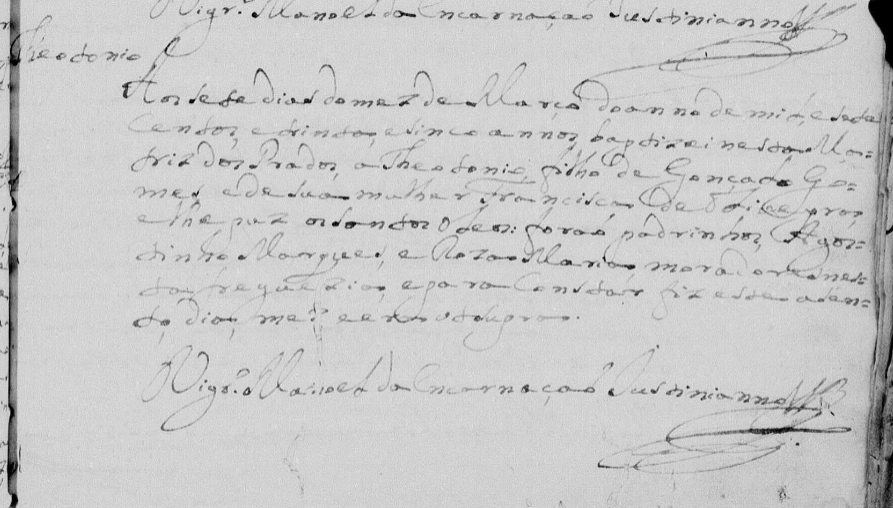 Vigr.º Manoel da Encarnaçaõ Justinianno
Theotonio
Aos sete dias do mez de Março do anno de mil, e sete
centos, e trinta, e sinco annos, baptizei nesta Ma-
triz dos Prados, a Theotonio, filho de Gonçalo Go-
mes, e de sua mulher Francisca de
e lhe puz os santos oleos: foraõ padrinhos, Agos-
tinho Marques, e Roza Maria, moradores nes-
ta freguezia, e para constar fiz este asen-
to, dia, mez, e era ut supra.
Vigr.º Manoel da Encarnaçaõ Justinianno